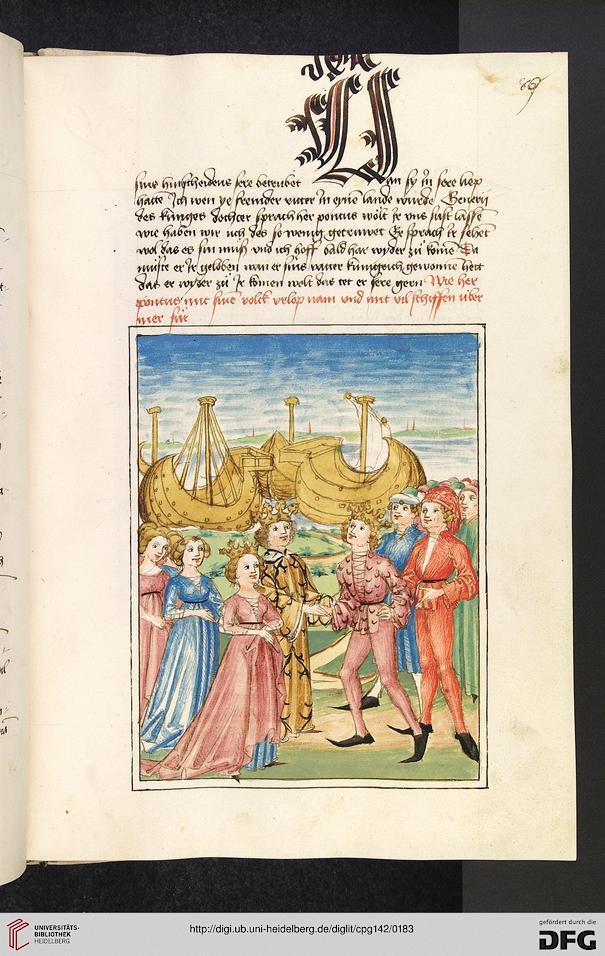 89
sins hinscheidens sere betrubet an sy in sere liep
hatte Ich wen ye fremder ritter in eyne lande wurde
des kuniges dochter sprach her pontus wolt ir uns sust lassen
wie haben wir uch des so wenig getruwet Er sprach ir sehet
wol das es sin muß und ich hoff bald har wyder zu kome Da
muste er ir geloben wan er sins vatter kunigrich gewonne hett
daz er wyder zu ir komen wolt das tet er sere gern Wie her
pontus mit sine volck urlop nam und mit vil schiffen uber
mer fur
UNIVERSITÄTS-
BIBLIOTHEK
HEIDELBERG
http://digi.ub.uni-heidelberg.de/diglit/cpg142/0183
gefördert durch die
DFG